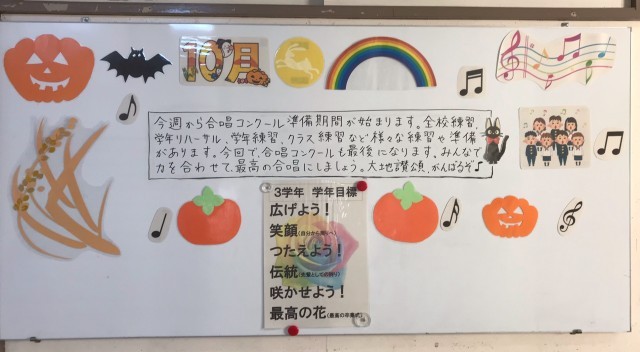 10月
今週から合唱コンクール準備期間が始まります。全校練習、
学年リハーサル、学年練習、クラス練習など様々な練習や準備
があります。今回で、合唱コンクールも最後になります。みんなで
力を合わせて、最高の合唱にしましょう。大地讃頌、がんばるぞ♪
3学年 学年目標
広げよう!
笑顔(自分から周りへ)
つたえよう!
伝統(先輩としての誇り)
咲かせよう!
最高の花(最高の卒業式)